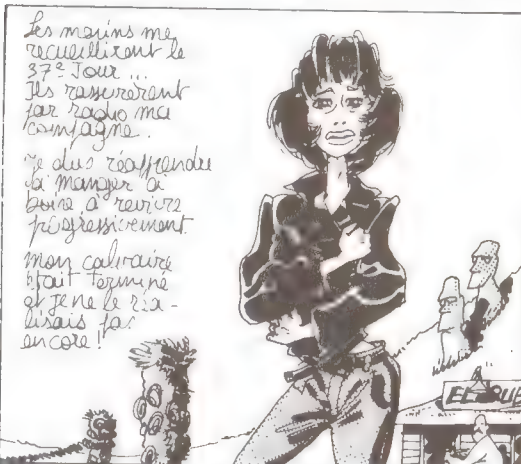 Les marins me
recueillirent le
37e Jour...
Ils rassurèrent
par radio ma
compagne.
Je dus réapprendre
à manger à
boire à revivre
progressivement.
Mon calvaire
était terminé
et je ne le réa-
lisais pas
encore !